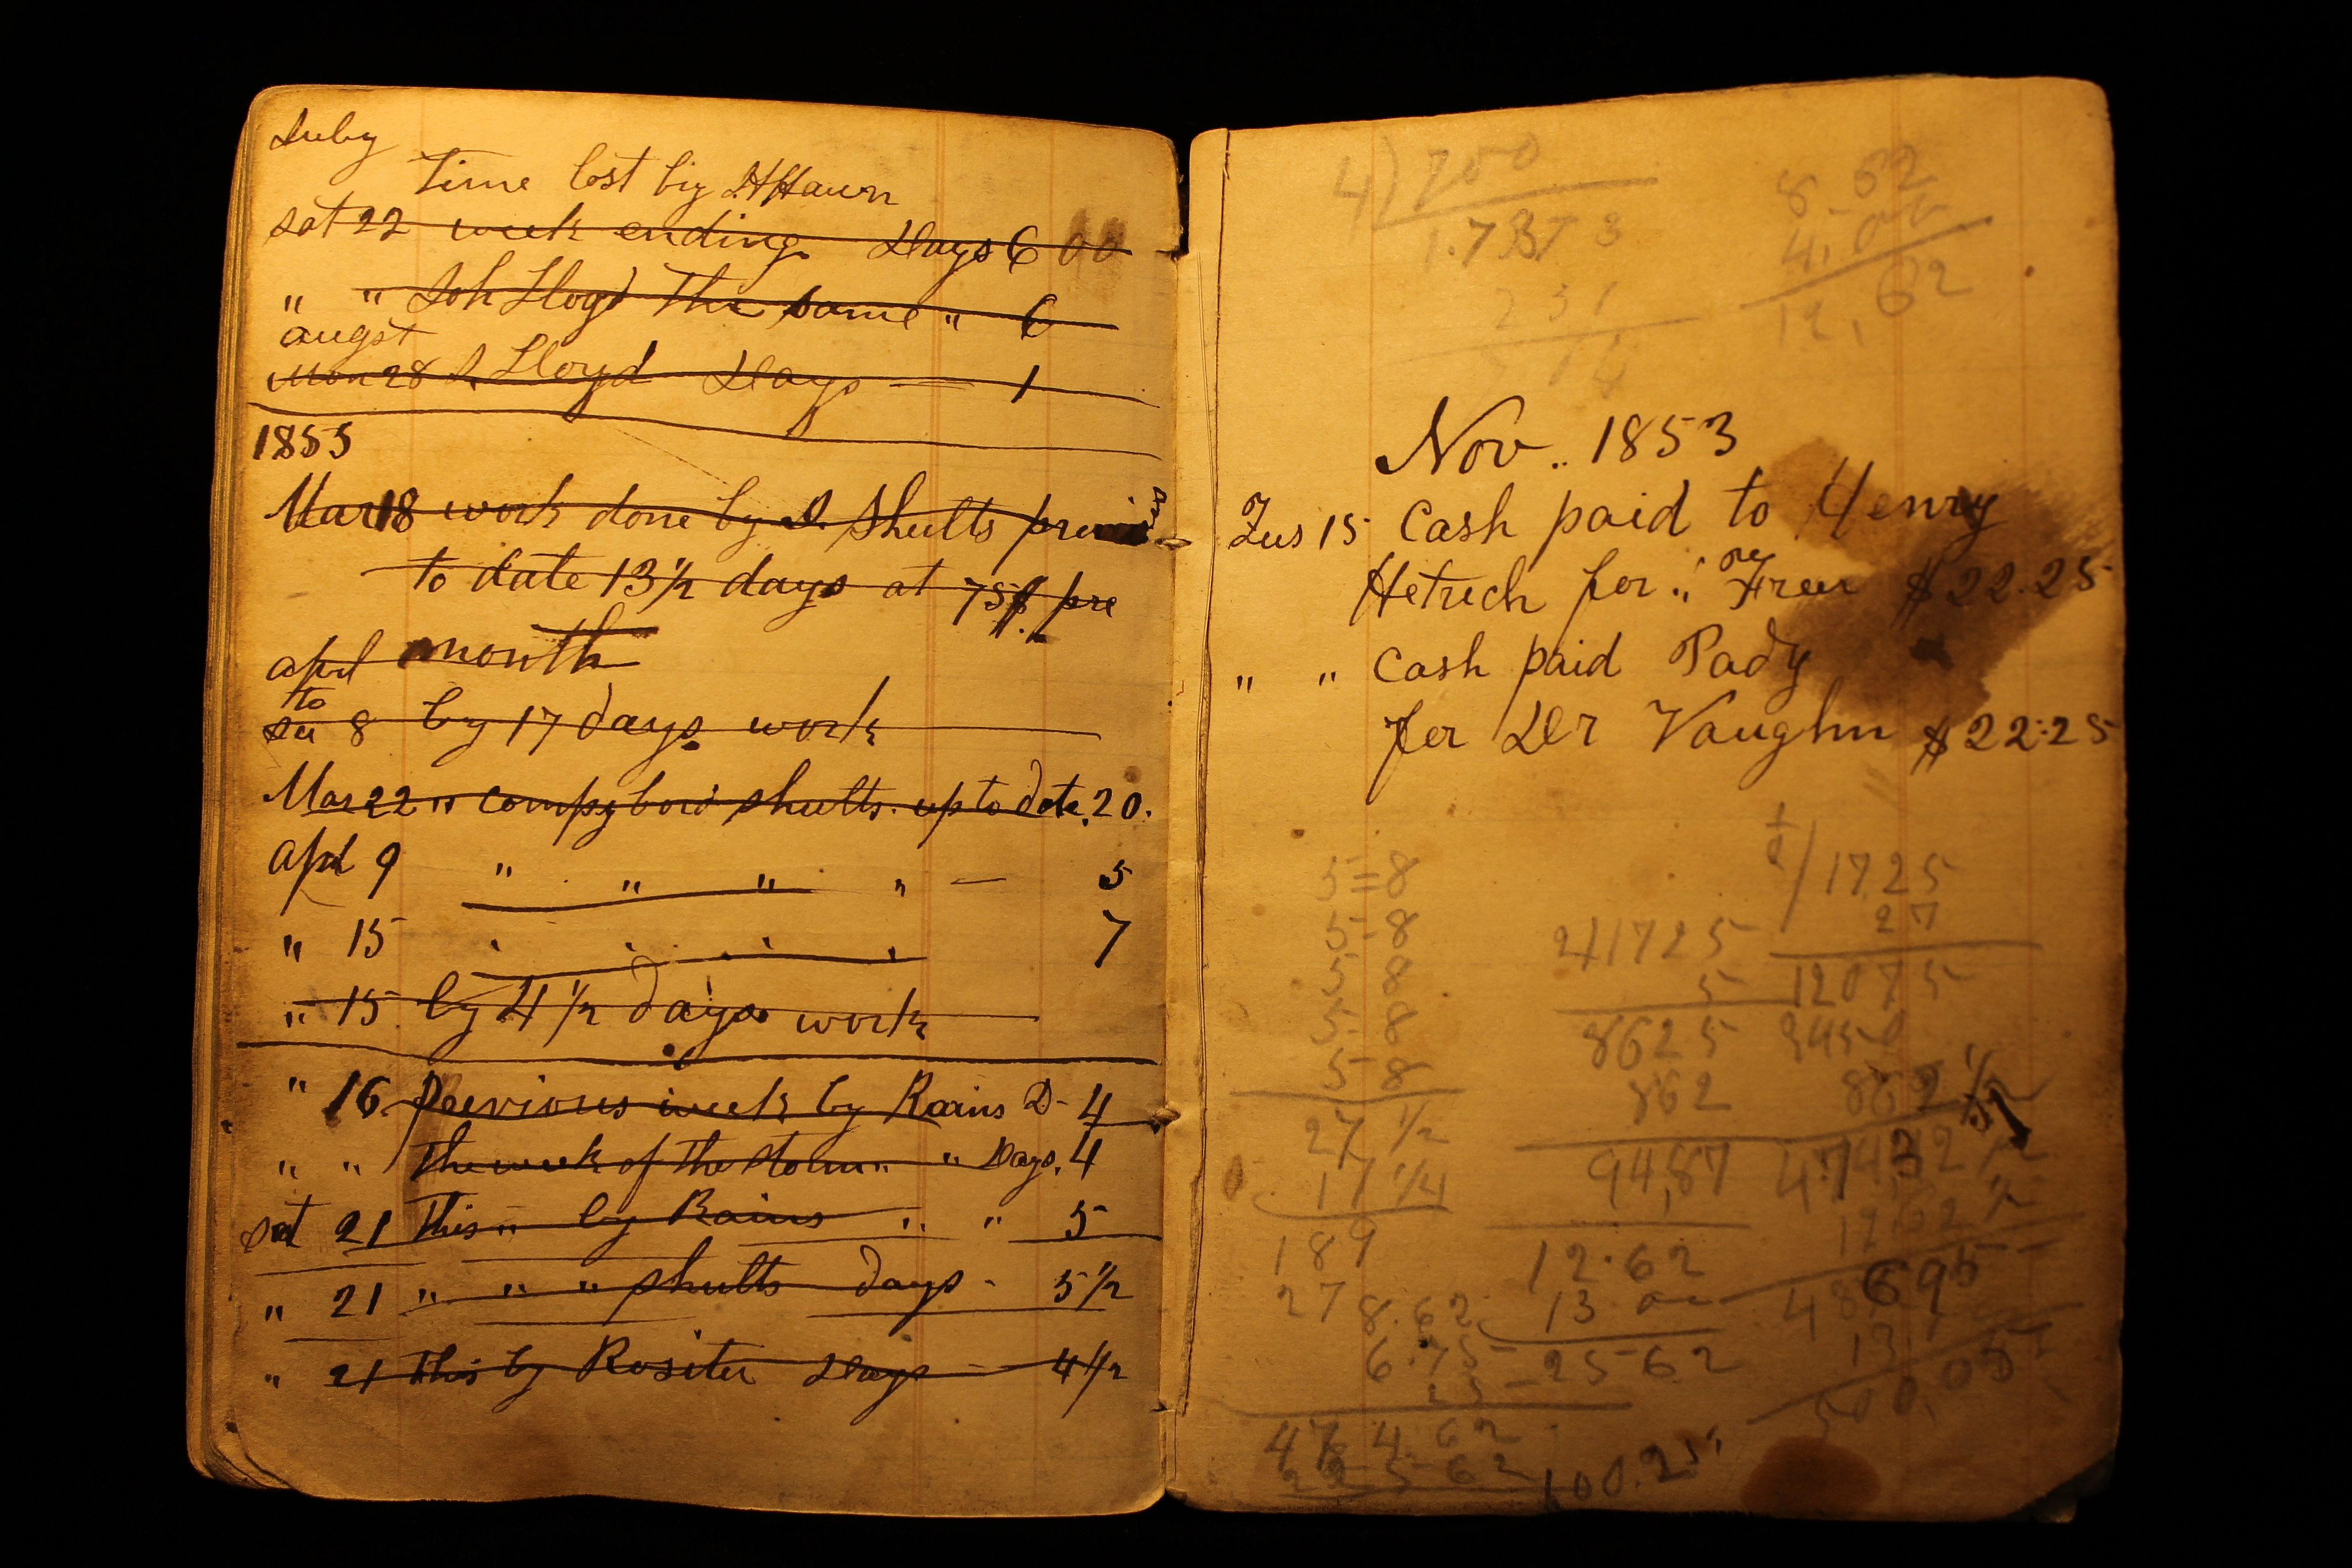 July
Time lost by H Hawn
sat 22 week ending Days 6 00
" " Joh Lloyd The same " 6
augst
Mon 28 J. Lloyd Days — 1
1855
Mar 18 work done by D. Shults previous
to date 13 1/2 days at 75 pre
month
aprl
to
8 by 17 days work
Mar 22 " compy bord shults. up to date. 20.
Aprl 9 " " " " — 5
" 15 7
" 15 by 4 1/2 days work
" 16 Previous week by Rains D- 4
" " The week of the storm " " Days. 4
sat 21 This " by Rains " " 5
" 21 " " " shults days - 5 1/2
" 21 this by Rositer Days — 4 1/2
4) 700
1.73 73
231
8.62
4.00
12.62
Nov.. 1853
Tus 15 Cash paid to Henry
Hetrech for " Freer $22.25
" " Cash paid Pady
for Dr Vaughn $22.25
5=8
5-8
5 8
5-8
5-8
27 1/2
17 1/4
189
27
1725
5
8625
862
94,87
1725
27
12075
3450
862 1/2
474,32 1/2
12.62 1/2
695
12.62
13 00
25 62
8.62
6.75
25
47 4.62
25 62
100.25